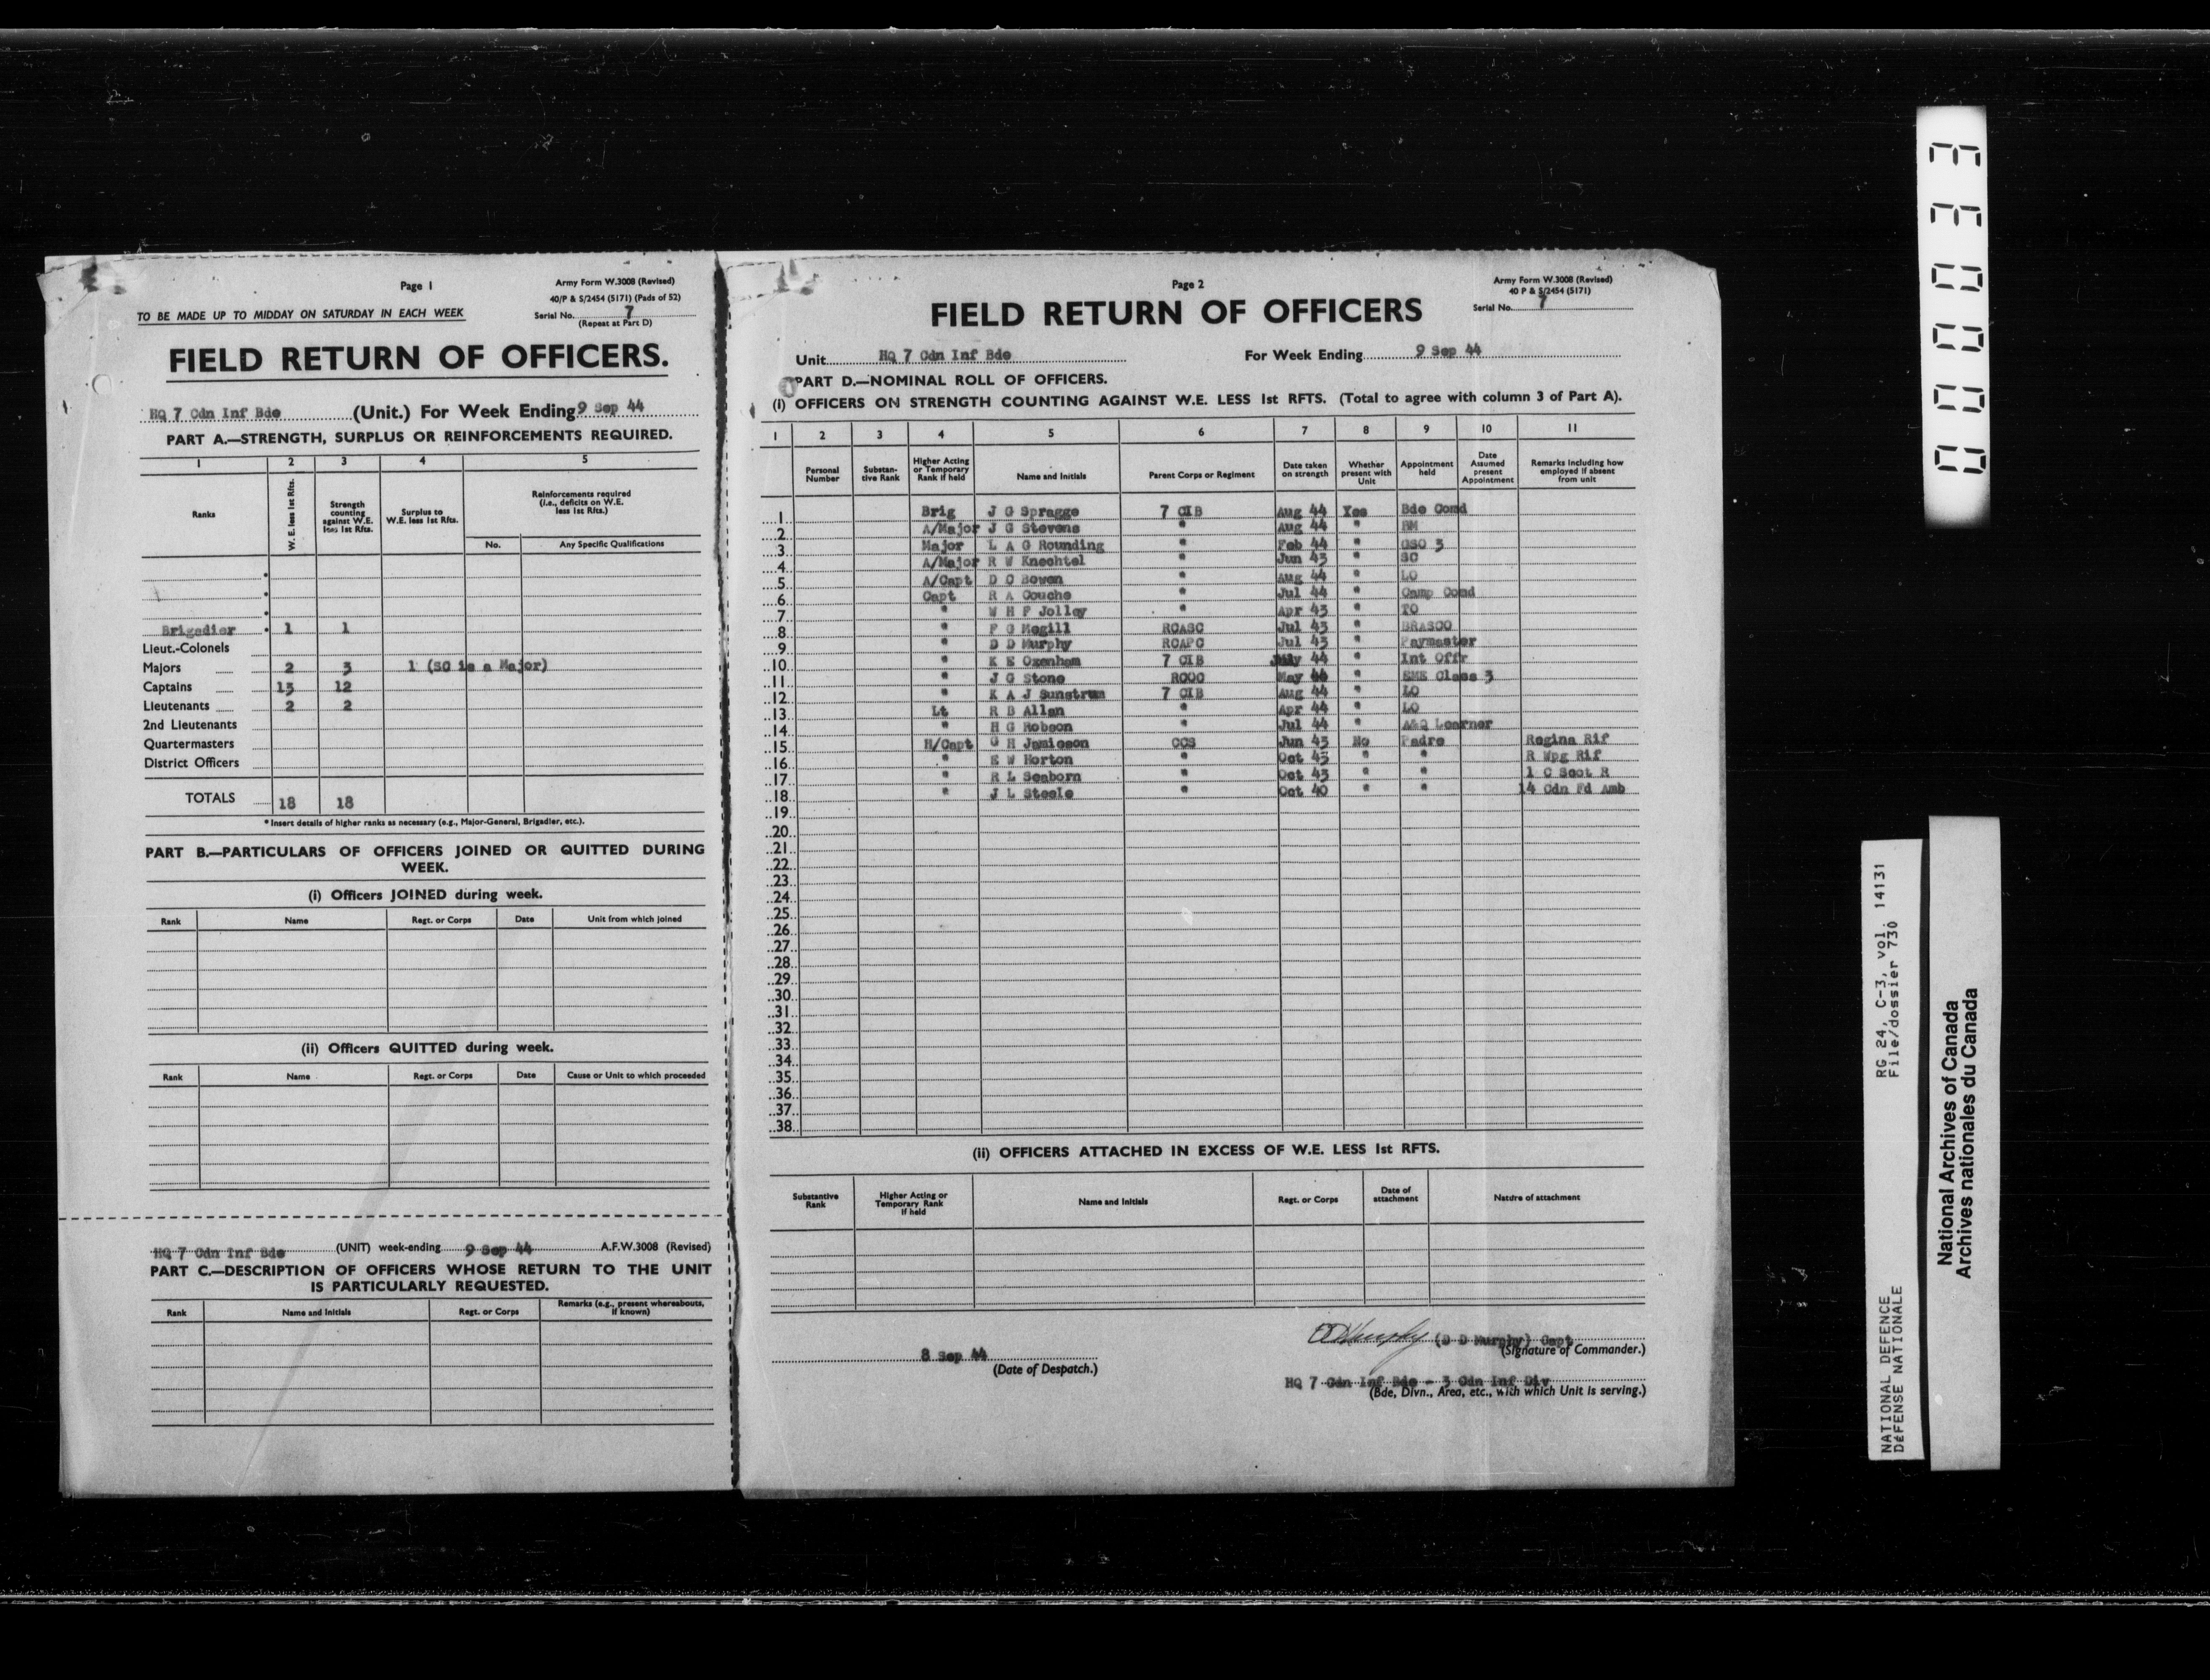 Page 1
Army Form W.3008 (Revised)
40/P & S/2454 (5171) (Pads of 52)
TO BE MADE UP TO MIDDAY ON SATURDAY IN EACH WEEK
Serial No. 7
(Repeat at Part D)
FIELD RETURN OF OFFICERS.
HQ 7 Cdn Inf Bde (Unit.) For Week Ending 9 Sep 44
PART A.—STRENGTH, SURPLUS OR REINFORCEMENTS REQUIRED.
1 2 3 4 5
Ranks
W. E. less 1st Rfts.
Strength counting against W.E. less 1st Rfts.
Surplus to W.E. less 1st Rfts.
Reinforcements required (i.e., deficits on W.E. less 1st Rfts.)
No. Any Specific Qualifications
Brigadier * 1 1
Lieut.-Colonels
Majors 2 3 1 (SC is a Major)
Captains 13 12
Lieutenants 2 2
2nd Lieutenants
Quartermasters
District Officers
TOTALS 18 18
* Insert details of higher ranks as necessary (e.g., Major-General, Brigadier, etc.).
PART B.—PARTICULARS OF OFFICERS JOINED OR QUITTED DURING
WEEK.
(i) Officers JOINED during week.
Rank Name Regt. or Corps Date Unit from which joined
(ii) Officers QUITTED during week.
Rank Name Regt. or Corps Date Cause or Unit to which proceeded
HQ 7 Cdn Inf Bde (UNIT) week-ending 9 Sep 44 A.F.W.3008 (Revised)
PART C.—DESCRIPTION OF OFFICERS WHOSE RETURN TO THE UNIT
IS PARTICULARLY REQUESTED.
Rank Name and Initials Regt. or Corps Remarks (e.g., present whereabouts, if known)
Page 2
Army Form W.3008 (Revised)
40 P & S/2454 (5171)
Serial No. 7
FIELD RETURN OF OFFICERS
Unit HQ 7 Cdn Inf Bde For Week Ending 9 Sep 44
PART D.—NOMINAL ROLL OF OFFICERS.
(i) OFFICERS ON STRENGTH COUNTING AGAINST W.E. LESS 1st RFTS. (Total to agree with column 3 of Part A).
1 2 3 4 5 6 7 8 9 10 11
Personal Number
Substantive Rank
Higher Acting or Temporary Rank if held
Name and Initials
Parent Corps or Regiment
Date taken on strength
Whether present with Unit
Appointment held
Date Assumed present Appointment
Remarks including how employed if absent from unit
1 Brig J G Spragge 7 CIB Aug 44 Yes Bde Comd
2 A/Major J G Stevens " Aug 44 " BM
3 Major L A G Rounding " Feb 44 " GSO 3
4 A/Major R W Knechtel " Jun 43 " SC
5 A/Capt D C Bowen " Aug 44 " LO
6 Capt R A Couche " Jul 44 " Camp Comd
7 " W H F Jolley " Apr 43 " TO
8 " F G Megill RCASC Jul 43 " BRASCO
9 " D D Murphy RCAPC Jul 43 " Paymaster
10 " K E Oxenham 7 CIB 44 " Int Offr
11 " J G Stone RCOC May 44 " EME Class 3
12 " K A J Sunstrum 7 CIB Aug 44 " LO
13 Lt R B Allan " Apr 44 " LO
14 " H G Robson " Jul 44 " A&Q Learner
15 H/Capt G H Jamieson CCS Jun 43 No Padre Regina Rif
16 " E W Horton " Oct 43 " " R Wpg Rif
17 " R L Seaborn " Oct 43 " " 1 C Scot R
18 " J L Steele " Oct 40 " " 14 Cdn Fd Amb
19
20
21
22
23
24
25
26
27
28
29
30
31
32
33
34
35
36
37
38
(ii) OFFICERS ATTACHED IN EXCESS OF W.E. LESS 1st RFTS.
Substantive Rank Higher Acting or Temporary Rank if held Name and Initials Regt. or Corps Date of attachment Nature of attachment
DDMurphy (D D Murphy) Capt
(Signature of Commander.)
8 Sep 44
(Date of Despatch.)
HQ 7 Cdn Inf Bde - 3 Cdn Inf Div
(Bde, Divn., Area, etc., with which Unit is serving.)
RG 24, C-3, vol. 14131
File/dossier 730
NATIONAL DEFENCE
DÉFENSE NATIONALE
National Archives of Canada
Archives nationales du Canada